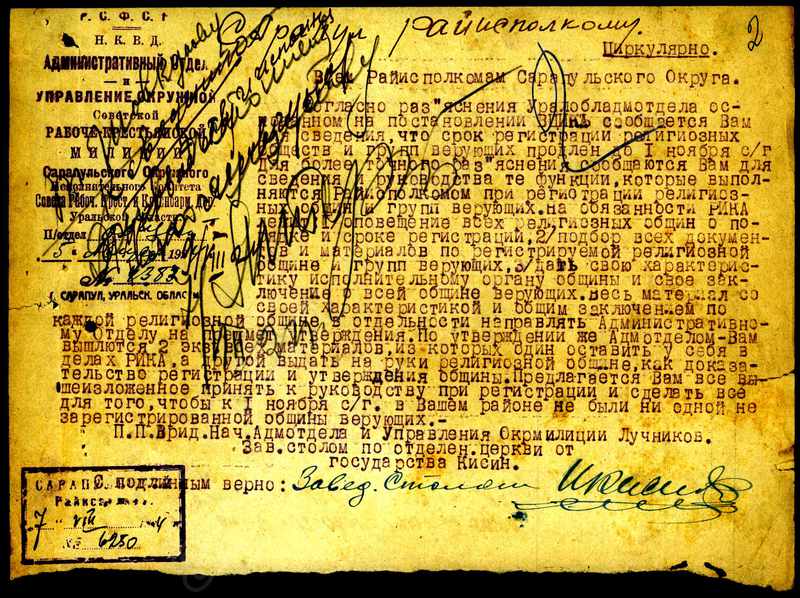 Р.С.Ф.С.Р.
Н.К.В.Д.
Административный Отдел
— и —
УПРАВЛЕНИЕ ОКРУЖНОЙ
Советской
РАБОЧЕ-КРЕСТЬЯНСКОЙ
МИЛИЦИИ
Сарапульского Окружного
Исполнительного Комитета
Совета Рабоч. Крест. и Красноарм. Деп.
Уральской области
П/отдел
15
№ 6383
САРАПУЛ, УРАЛЬСК. ОБЛАСТ
Райисполкому.
2
Циркулярно.
Всем Райисполкомам Сарапульского Округа.
Согласно раз"яснения Уралобладмотдела ос-
нованном на постановлении сообщается Вам
сведения, что срок регистрации религиозных
обществ и групп верующих продлен I ноября с/г
Для более точного раз"яснения сообщаются Вам для
сведения и руководства те функции, которые выпол-
няются Райисполкомом при регистрации религиоз-
ных и групп верующих. На обязанности РИКА
оповещение всех религиозных общин о по-
рядке и сроке регистрации, 2/подбор всех докумен-
тов и материалов по регистрируемой религиозной
общине и групп верующих, 3/дать свою характерис-
тику исполнительному органу общины и свое зак-
лючение о всей общине верующих. Весь материал со
своей характеристикой и общим заключением по
каждой религиозной общине в отдельности направлять Административно-
му отделу на утверждения. По утверждении же Адмотделом-Вам
вышлются 2 материалов, из которых один оставить у себя в
делах РИКА, а другой выдать на руки религиозной общине, как доказа-
тельство регистрации и утверждения общины. Предлагается Вам все вы-
шеизложенное принять к руководству при регистрации и сделать все
для того, чтобы к I ноября с/г. в Вашем районе не были ни одной не
зарегистрированной общины верующих.-
П.П. Врид. Нач. Адмотдела и Управления Окрмилиции Лучников.
Зав. столом по отделен. церкви от
государства Кисин.
С подлинным верно: Завед. Столом ИКисин
САРАП
Райис
7 VIII
№ 6250